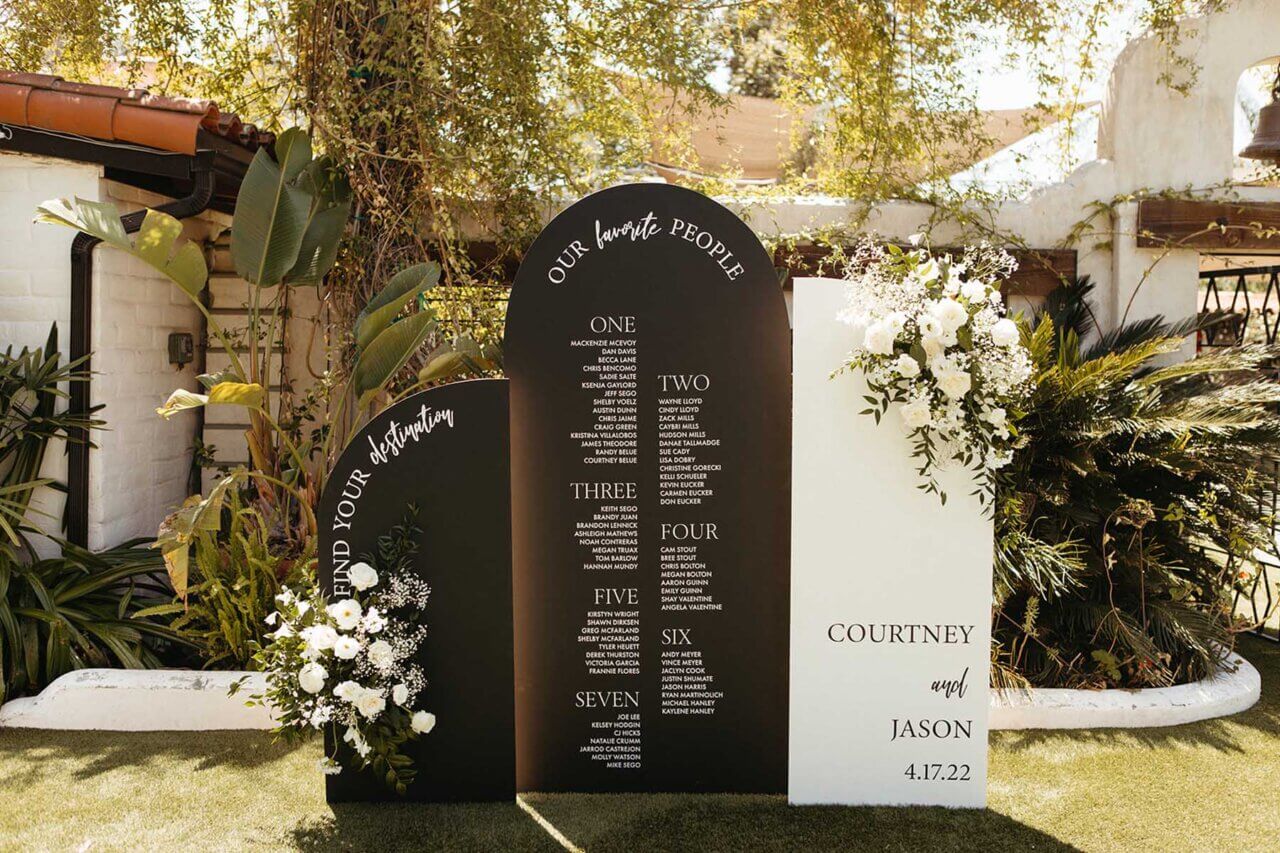 FIND YOUR destination
OUR favorite PEOPLE
ONE
MACKENZIE MCEVOY
DAN DAVIS
BECCA LANE
CHRIS BENCOMO
SADIE SALTE
KSENJA GAYLORD
JEFF SEGO
SHELBY VOELZ
AUSTIN DUNN
CHRIS JAIME
CRAIG GREEN
KRISTINA VILLALOBOS
JAMES THEODORE
RANDY BELUE
COURTNEY BELUE
TWO
WAYNE LLOYD
CINDY LLOYD
ZACK MILLS
CAYBRI MILLS
HUDSON MILLS
DANAE TALMADGE
SUE CADY
LISA DOBRY
CHRISTINE GORECKI
KELLI SCHUELER
KEVIN EUCKER
CARMEN EUCKER
DON EUCKER
THREE
KEITH SEGO
BRANDY JUAN
BRANDON LENNICK
ASHLEIGH MATHEWS
NOAH CONTRERAS
MEGAN TRUAX
TOM BARLOW
HANNAH MUNDY
FOUR
CAM STOUT
BREE STOUT
CHRIS BOLTON
MEGAN BOLTON
AARON GUINN
EMILY GUINN
SHAY VALENTINE
ANGELA VALENTINE
FIVE
KIRSTYN WRIGHT
SHAWN DIRKSEN
GREG MCFARLAND
SHELBY MCFARLAND
TYLER HEUETT
DEREK THURSTON
VICTORIA GARCIA
FRANNIE FLORES
SIX
ANDY MEYER
VINCE MEYER
JACLYN COOK
JUSTIN SHUMATE
JASON HARRIS
RYAN MARTINOLICH
MICHAEL HANLEY
KAYLENE HANLEY
SEVEN
JOE LEE
KELSEY HODGIN
CJ HICKS
NATALIE CRUMM
JARROD CASTREJON
MOLLY WATSON
MIKE SEGO
COURTNEY
and
JASON
4.17.22